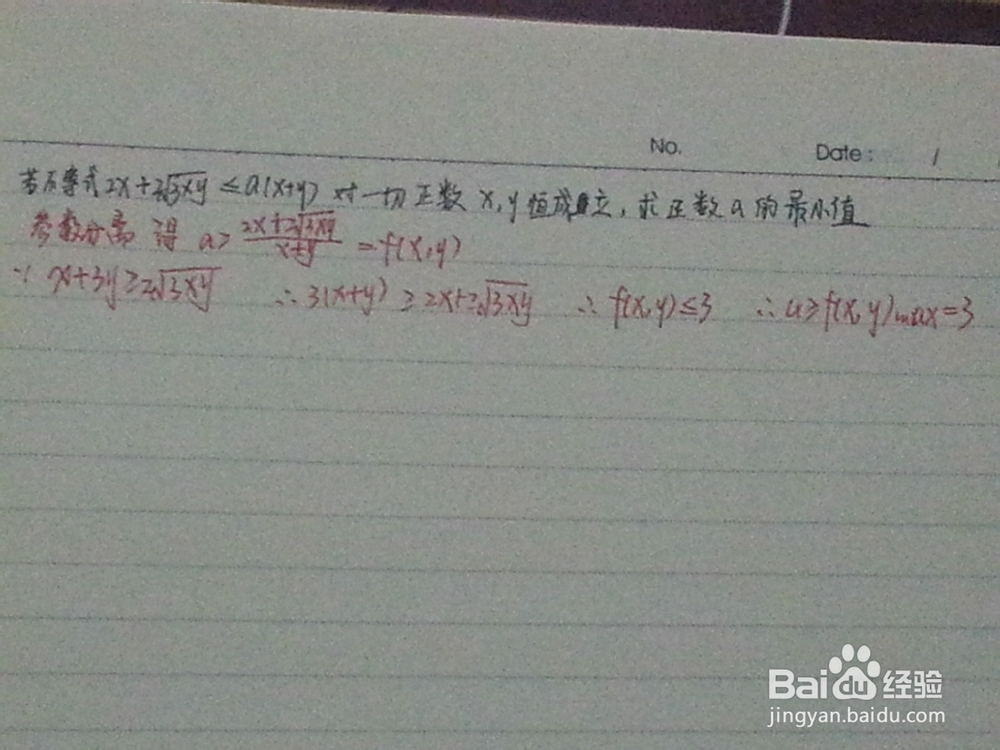 No. Date: /
若不等式2x+2√3xy ≤a(x+y) 对一切正数 x,y 恒成立,求正数a的最小值
参数分离 得 a≥ (2x+2√3xy)/(x+y) =f(x,y)
∵ x+3y≥2√3xy ∴3(x+y)≥2x+2√3xy ∴ f(x,y)≤3 ∴a≥f(x,y)max=3
Baidu经验
jingyan.baidu.com